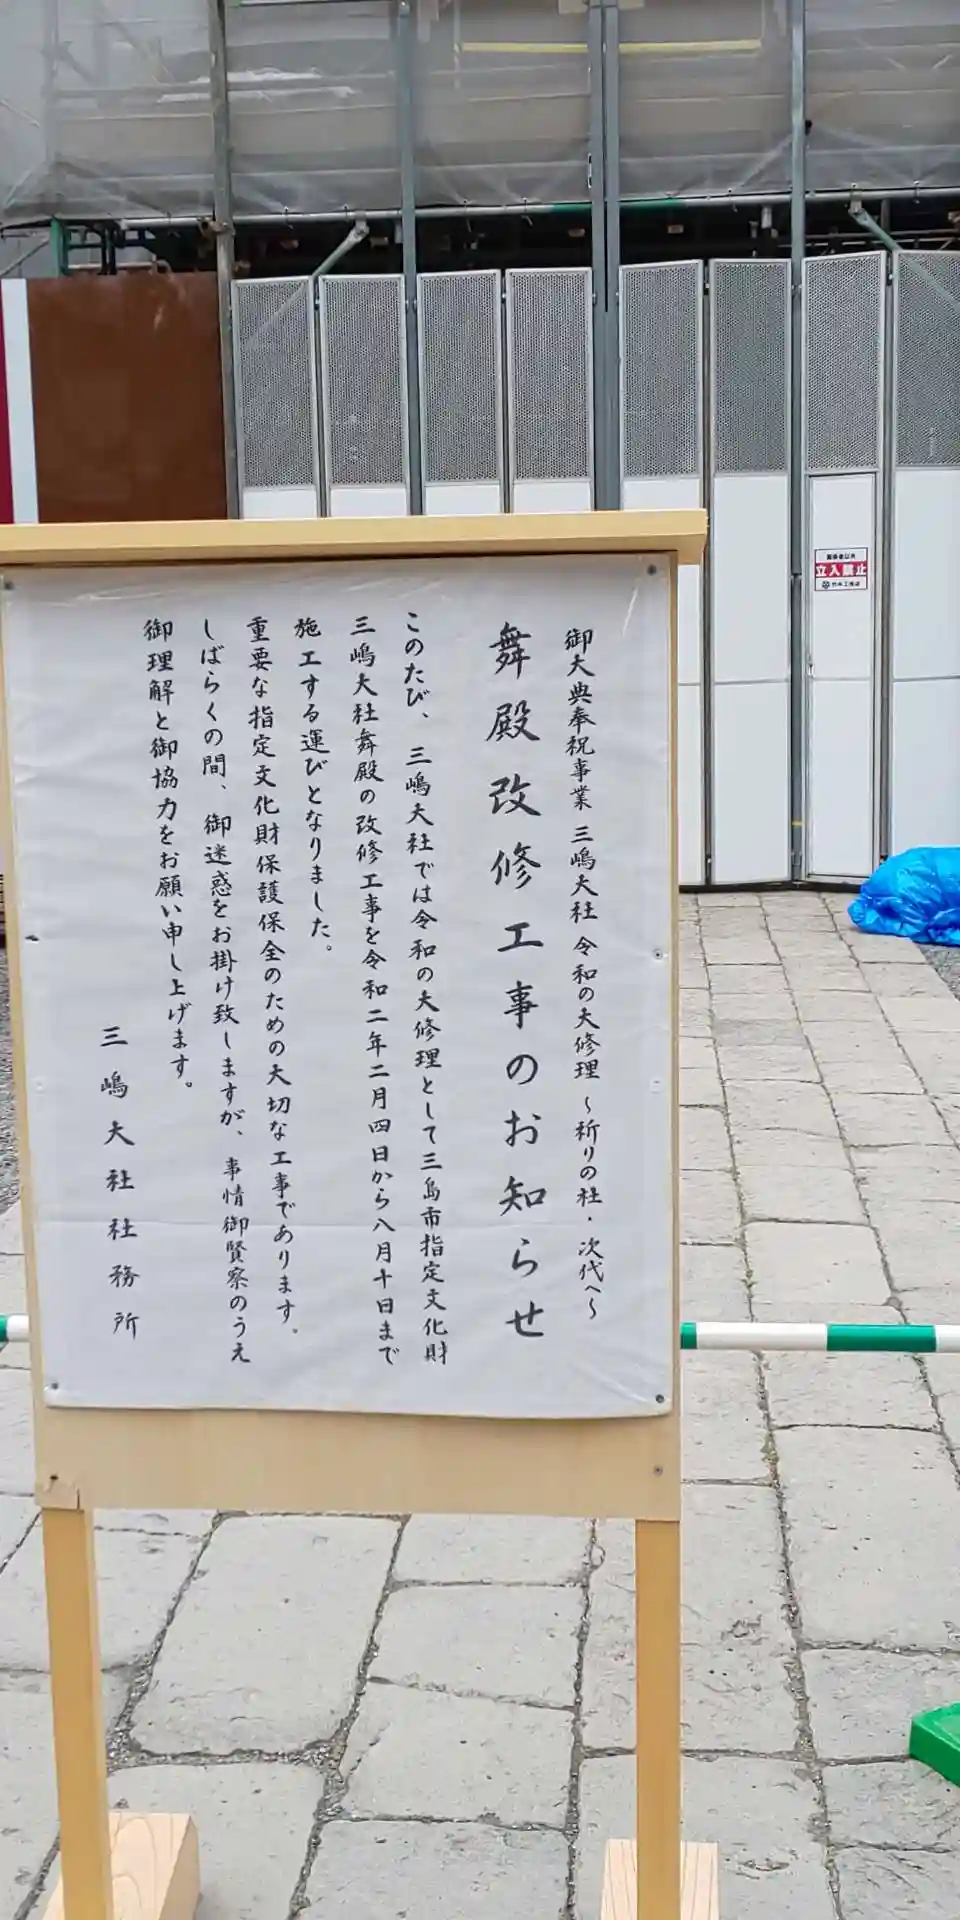 御大典奉祝事業 三嶋大社 令和の大修理 ～祈りの社・次代へ～
舞殿改修工事のお知らせ
このたび、三嶋大社では令和の大修理として三島市指定文化財
三嶋大社舞殿の改修工事を令和二年二月四日から八月十日まで
施工する運びとなりました。
重要な指定文化財保護保全のための大切な工事であります。
しばらくの間、御迷惑をお掛け致しますが、事情御賢察のうえ
御理解と御協力をお願い申し上げます。
三嶋大社社務所
関係者以外
立入禁止